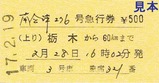 見本
南会津2号急行券 ¥500
(上り) 栃木 から60kmまで
2月18日16時02分発
3号車
17.2.19